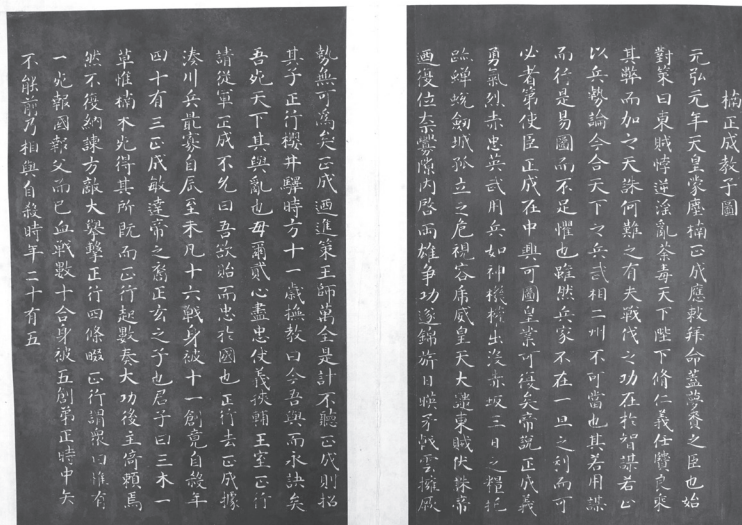 楠正成教子圖
元弘元年天皇蒙塵楠正成應敕拜命蓋夢賚之臣也始
對策曰東賊悖逆淫亂荼毒天下陛下脩仁義任賢良乘
其弊而加之天誅何難之有夫戰伐之功在於智謀若止
以兵勢論今合天下之兵武相二州不可當也其若用謀
而行是易圖而不足懼也雖然兵家不在一旦之利而可
必者第使臣正成在中興可圖皇業可復矣帝說正成義
勇氣烈赤忠英武用兵如神機出沒赤坂三日之糧
蟬蛻劔城孤立之危視容席威皇天大譴東賊伏誅帝
迺復位奈釁隙內啓兩雄爭功遂錦旂日暎矛戟雲擁厥
勢無可為矣正成迺進策王師萬全是計不聽正成則招
其子正行櫻井驛時方十一歲撫教曰今吾與而永訣矣
吾死天下其與亂也毋爾貳心盡忠使義挾輔王室正行
請從軍正成不允曰吾欲貽而忠於國也正行去正成據
湊川兵最寡自辰至未凡十六戰身被十一創竟自殺年
四十有三正成敏達帝之裔正玄之子也尼子曰三木一
草惟楠木死得其所既而正行起數奏大功後主倚賴焉
然不復納諫方敵大舉擊正行四條畷正行謂眾曰惟有
一死報國報父而已血戰數十合身被五創弟正時中矢
不能前乃相與自殺時年二十有五